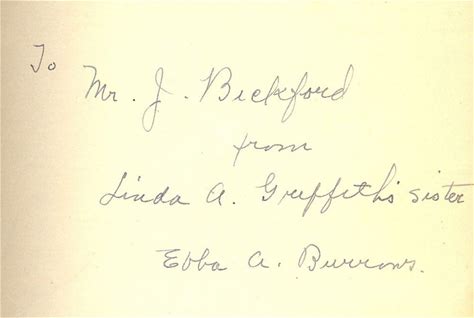 To
Mr. J. Bickford
from
Linda A. Griffith's sister
Ebba A. Burrows.